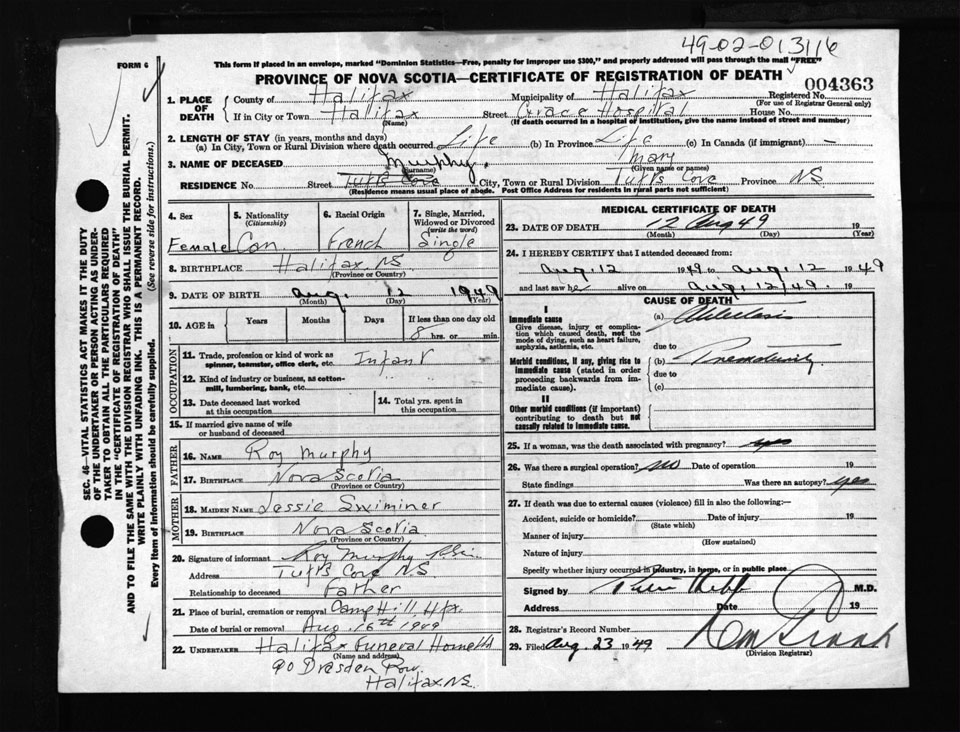 49-02-013116
FORM 6
This form if placed in an envelope, marked "Dominion Statistics—Free, penalty for improper use $300," and properly addressed will pass through the mail "FREE"
PROVINCE OF NOVA SCOTIA—CERTIFICATE OF REGISTRATION OF DEATH
004363
1. PLACE OF DEATH
County of Halifax Municipality of Halifax Registered No.
(For use of Registrar General only)
If in City or Town Halifax Street Grace Hospital House No.
(Name) (If death occurred in a hospital of institution, give the name instead of street and number)
2. LENGTH OF STAY (in years, months and days)
(a) In City, Town or Rural Division where death occurred Life (b) In Province Life (c) In Canada (if immigrant) —
3. NAME OF DECEASED Murphy, Mary
(Surname) (Given name or names)
RESIDENCE No. Street Tuft's Cove City, Town or Rural Division Tuft's Cove Province NS
(Residence means usual place of abode. Post Office Address for residents in rural parts not sufficient)
4. Sex
Female
5. Nationality
(Citizenship)
Can.
6. Racial Origin
French
7. Single, Married, Widowed or Divorced
(write the word)
Single
8. BIRTHPLACE Halifax, NS
(Province or Country)
9. DATE OF BIRTH Aug. 12 1949
(Month) (Day) (Year)
10. AGE in Years Months Days If less than one day old
8 hrs. or min.
OCCUPATION
11. Trade, profession or kind of work as spinner, teamster, office clerk, etc. Infant
12. Kind of industry or business, as cotton-mill, lumbering, bank, etc.
13. Date deceased last worked at this occupation
14. Total yrs. spent in this occupation
15. If married give name of wife or husband of deceased
FATHER
16. NAME Roy Murphy
17. BIRTHPLACE Nova Scotia
(Province or Country)
MOTHER
18. MAIDEN NAME Jessie Swiminer
19. BIRTHPLACE Nova Scotia
(Province or Country)
20. Signature of informant Roy Murphy
Address Tuft's Cove N.S
Relationship to deceased Father
21. Place of burial, cremation or removal Camp Hill Hfx
Date of burial or removal Aug. 16th 1949
22. UNDERTAKER Halifax Funeral Home Ltd
(Name and address)
90 Dresden Row.
Halifax NS.
MEDICAL CERTIFICATE OF DEATH
23. DATE OF DEATH 12 Aug 49 19
(Month) (Day) (Year)
24. I HEREBY CERTIFY that I attended deceased from:
Aug. 12 1949 to Aug. 12 1949
and last saw her alive on Aug. 12/49. 19
CAUSE OF DEATH
I
Immediate cause
Give disease, injury or complication which caused death, not the mode of dying, such as heart failure, asphyxia, asthenia, etc.
(a) Atelectasis
due to
Morbid conditions, if any, giving rise to immediate cause (stated in order proceeding backwards from immediate cause).
(b) Prematurity
due to
(c)
II
Other morbid conditions (if important) contributing to death but not causally related to immediate cause.
25. If a woman, was the death associated with pregnancy? yes
26. Was there a surgical operation? no Date of operation 19
State findings Was there an autopsy? yes
27. If death was due to external causes (violence) fill in also the following:—
Accident, suicide or homicide? Date of injury 19
(State which)
Manner of injury
(How sustained)
Nature of injury
Specify whether injury occurred in industry, in home, or in public place
Signed by M.D.
Address Date 19
28. Registrar's Record Number
29. Filed Aug. 23 1949
(Division Registrar)
SEC. 46—VITAL STATISTICS ACT MAKES IT THE DUTY
OF THE UNDERTAKER OR PERSON ACTING AS UNDER-
TAKER TO OBTAIN ALL THE PARTICULARS REQUIRED
IN THE "CERTIFICATE OF REGISTRATION OF DEATH"
AND TO FILE THE SAME WITH THE DIVISION REGISTRAR WHO SHALL ISSUE THE BURIAL PERMIT.
WRITE PLAINLY WITH UNFADING INK. THIS IS A PERMANENT RECORD.
Every item of information should be carefully supplied. (See reverse side for instructions.)